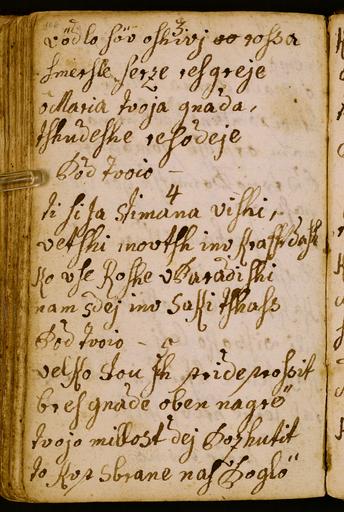 3
vödlo söv oshivj rossa
smersle serze resgreje
o Maria tvoja gnada,
tshudeshe resodeje
Pod tvoio —
4
ti si ta stimana vishi,
vetshi movtsh inv Krafft dash
Ko vse Roshe v Paradishi
nam sdej inv saki tshass
Pod tvoio — 5
velko Lou sh pride prossit
bres gnade oben nagrë
tvojo milost dej Poshutit
to Kor sbrane nas Poglö